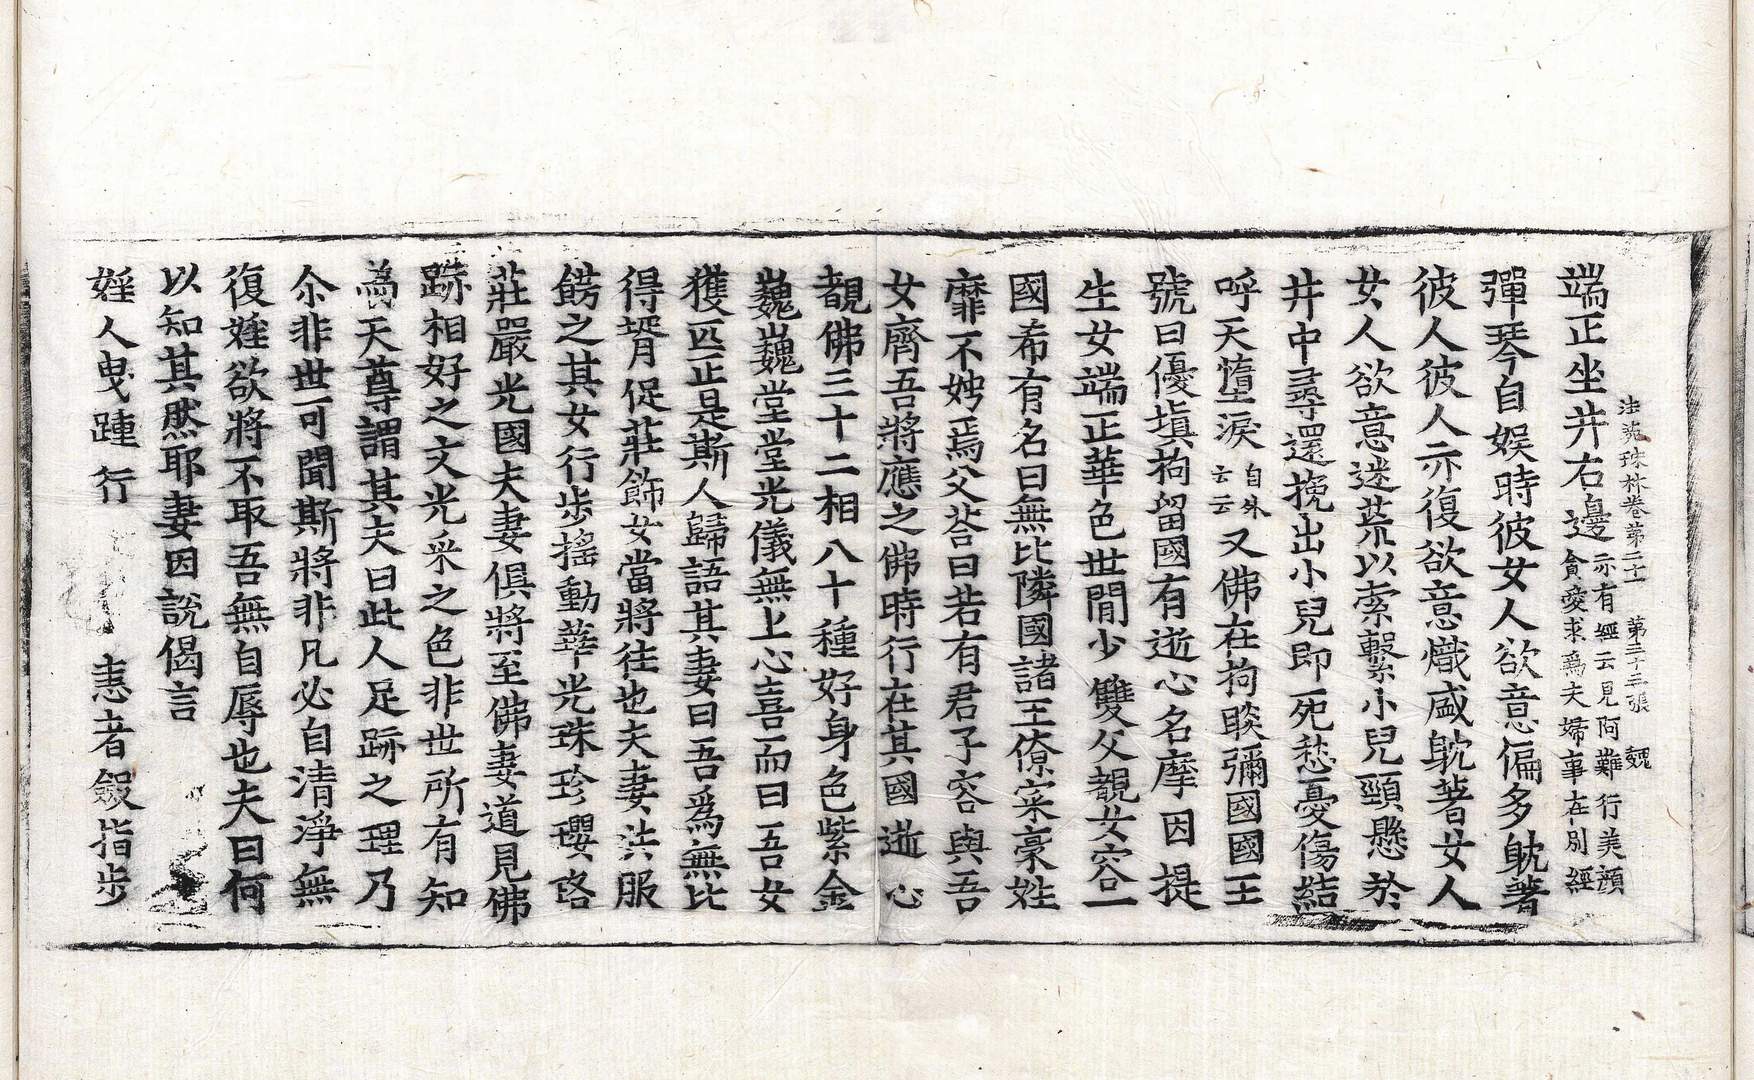 法苑珠林卷第二十一　第三十三張　魏
端正坐井右邊亦有經云見阿難行美顔貪愛求爲夫婦事在別經
彈琴自娛時彼女人欲意偏多躭著
彼人彼人亦復欲意熾盛躭著女人
女人欲意迷荒以索繫小兒頸懸於
井中尋還挽出小兒即死愁憂傷結
呼天墮淚自外云云又佛在拘睒彌國國王
號曰優塡拘留國有逝心名摩因提
生女端正華色世間少雙父覩女容一
國希有名曰無比隣國諸王僚寀豪姓
靡不娉焉父荅曰若有君子容與吾
女齊吾將應之佛時行在其國逝心
覩佛三十二相八十種好身色紫金
巍巍堂堂光儀無上心喜而曰吾女
獲匹正是斯人歸語其妻曰吾爲無比
得壻促莊飾女當將往也夫妻共服
餝之其女行步搖動華光珠珍瓔珞
莊嚴光國夫妻俱將至佛妻道見佛
跡相好之文光采之色非世所有知
爲天尊謂其夫曰此人足跡之理乃
尒非世可聞斯將非凡必自清淨無
復婬欲將不取吾無自辱也夫曰何
以知其然耶妻因說偈言
婬人曳踵行　恚者斂指步